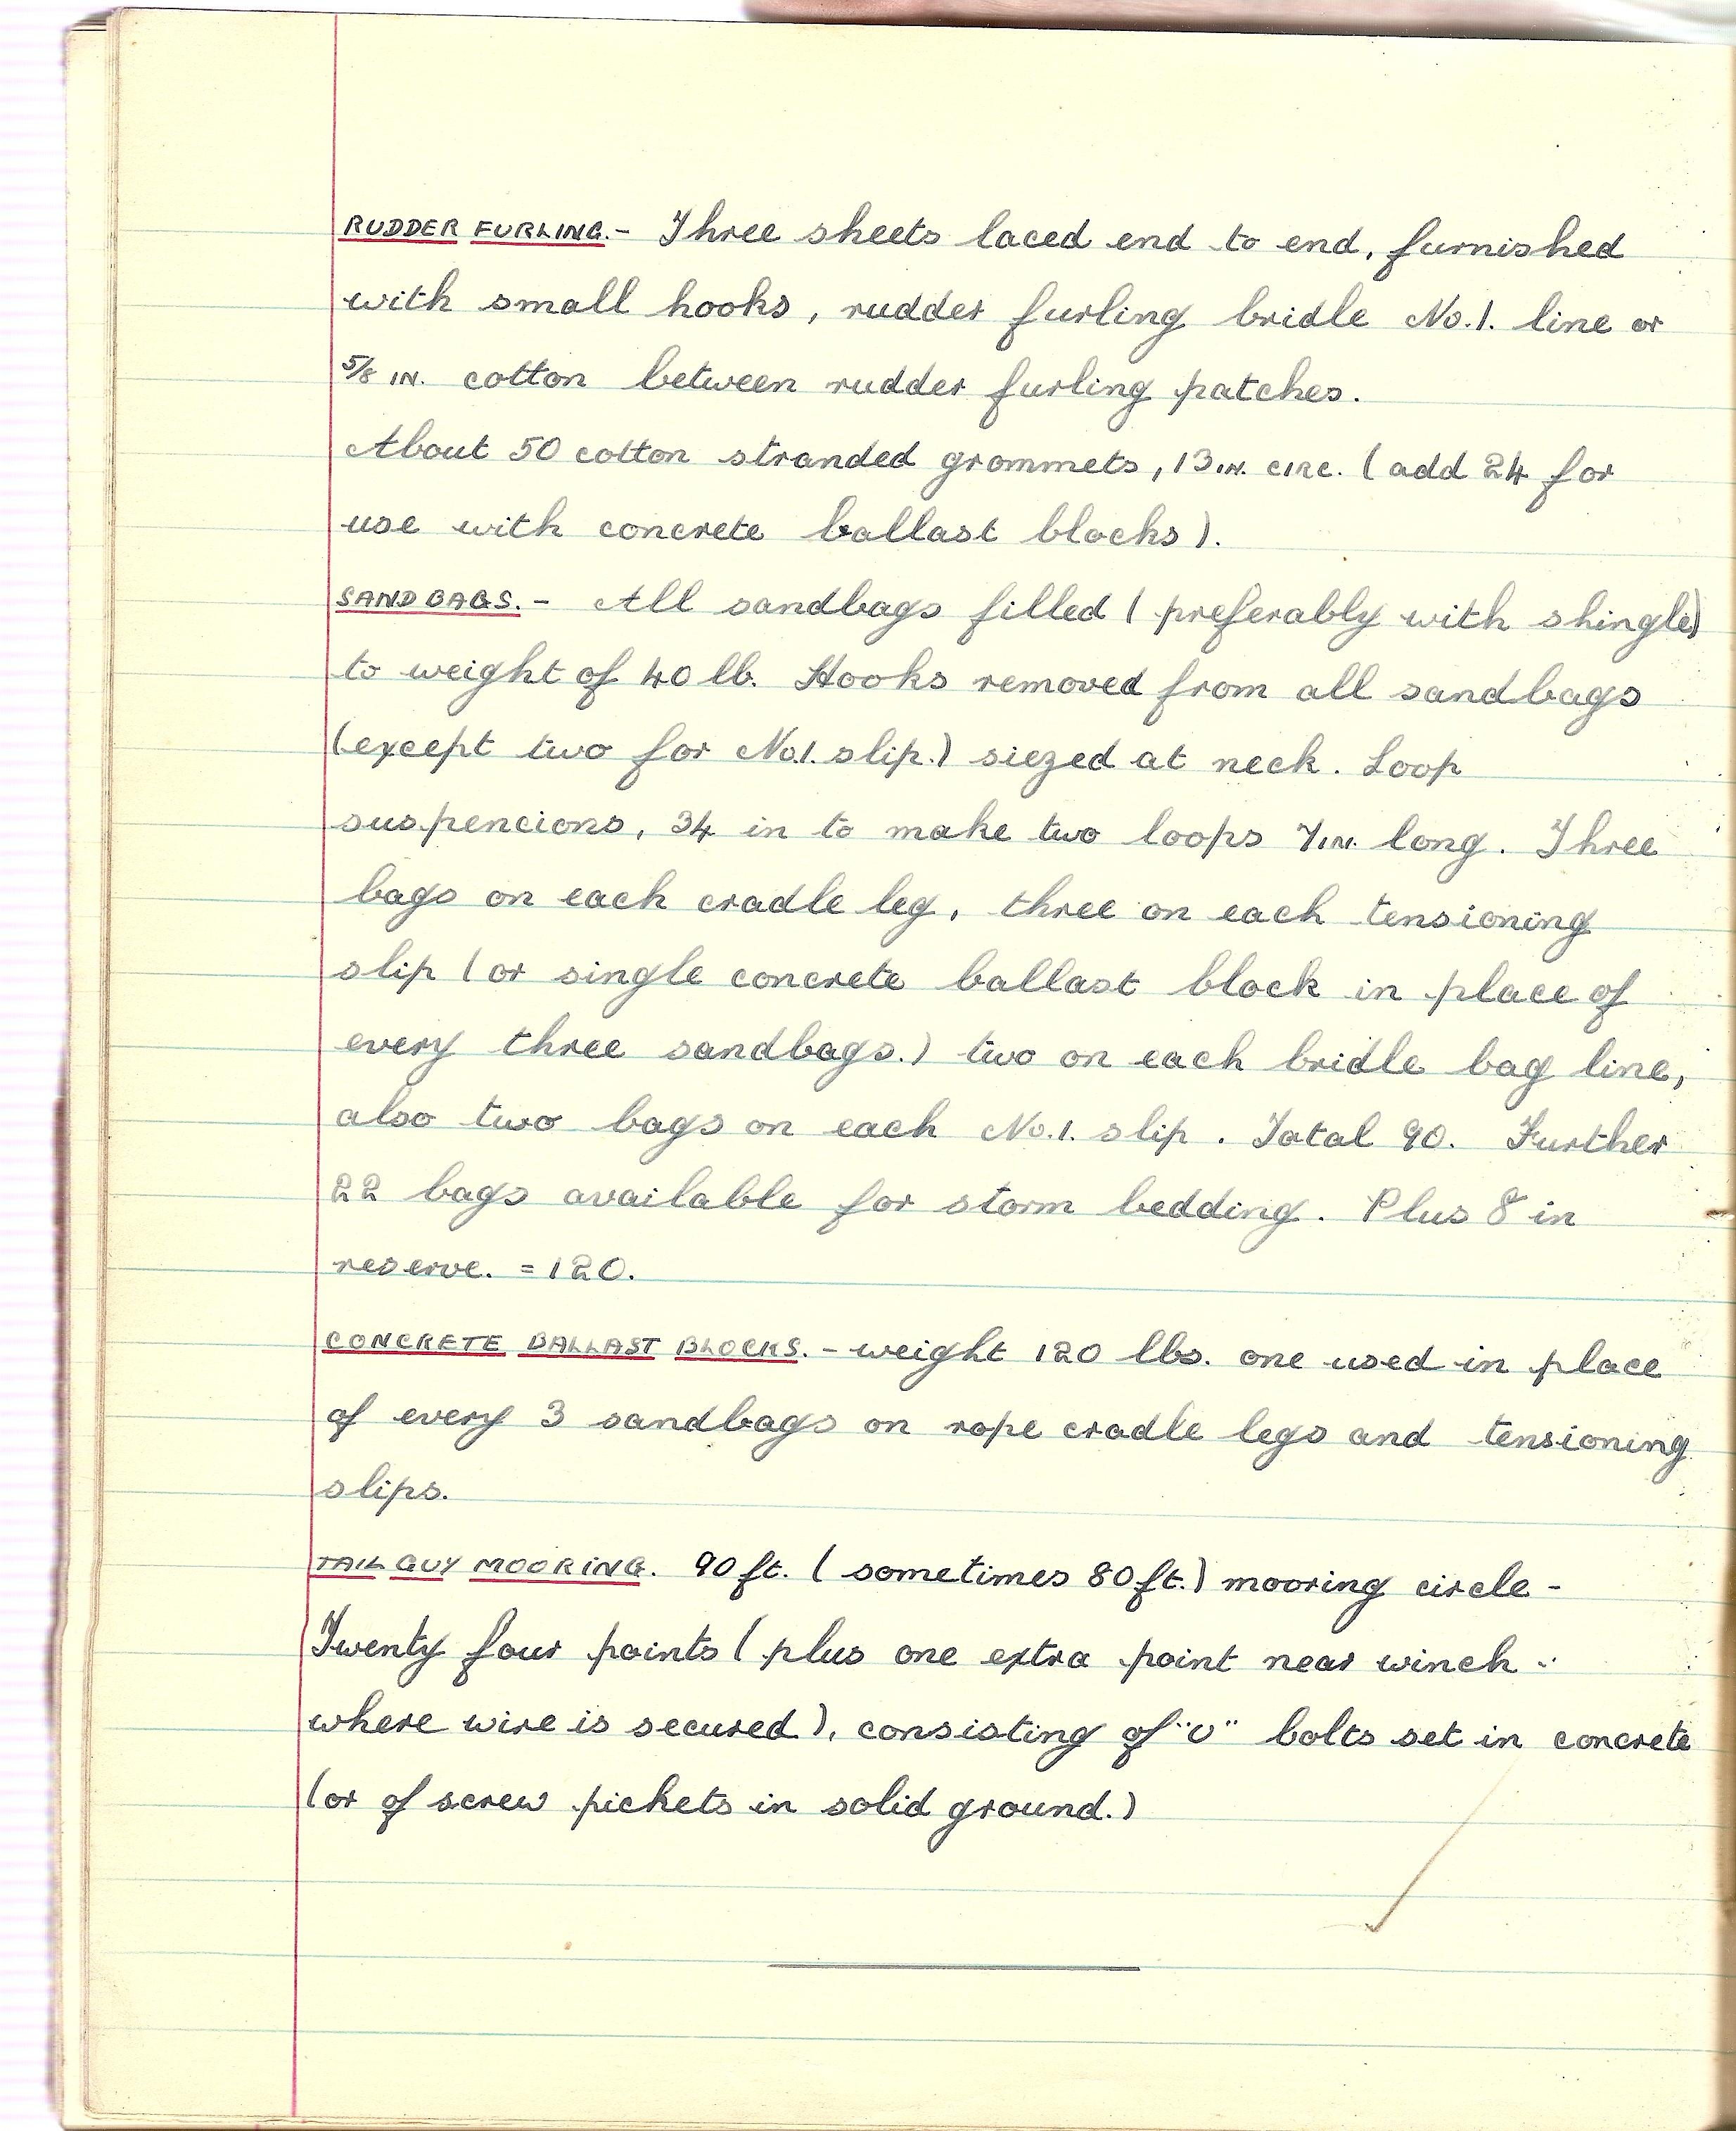 RUDDER FURLING.- Three sheets laced end to end, furnished
with small hooks, rudder furling bridle No.1. line or
5/8 IN. cotton between rudder furling patches.
About 50 cotton stranded grommets, 13 IN. CIRC. (add 24 for
use with concrete ballast blocks).
SANDBAGS.- All sandbags filled (preferably with shingle)
to weight of 40 lb. Hooks removed from all sandbags
(except two for No.1. slip.) siezed at neck. Loop
suspencions, 34 in to make two loops 7 IN. long. Three
bags on each cradle leg, three on each tensioning
slip (or single concrete ballast block in place of
every three sandbags.) two on each bridle bag line,
also two bags on each No.1. slip. Total 90. Further
22 bags available for storm bedding. Plus 8 in
reserve. = 120.
CONCRETE BALLAST BLOCKS. - weight 120 lbs. one used in place
of every 3 sandbags on rope cradle legs and tensioning
slips.
TAIL GUY MOORING. 90 ft. (sometimes 80 ft.) mooring circle -
Twenty four points (plus one extra point near winch -
where wire is secured), consisting of "U" bolts set in concrete
(or of screw pickets in solid ground.)